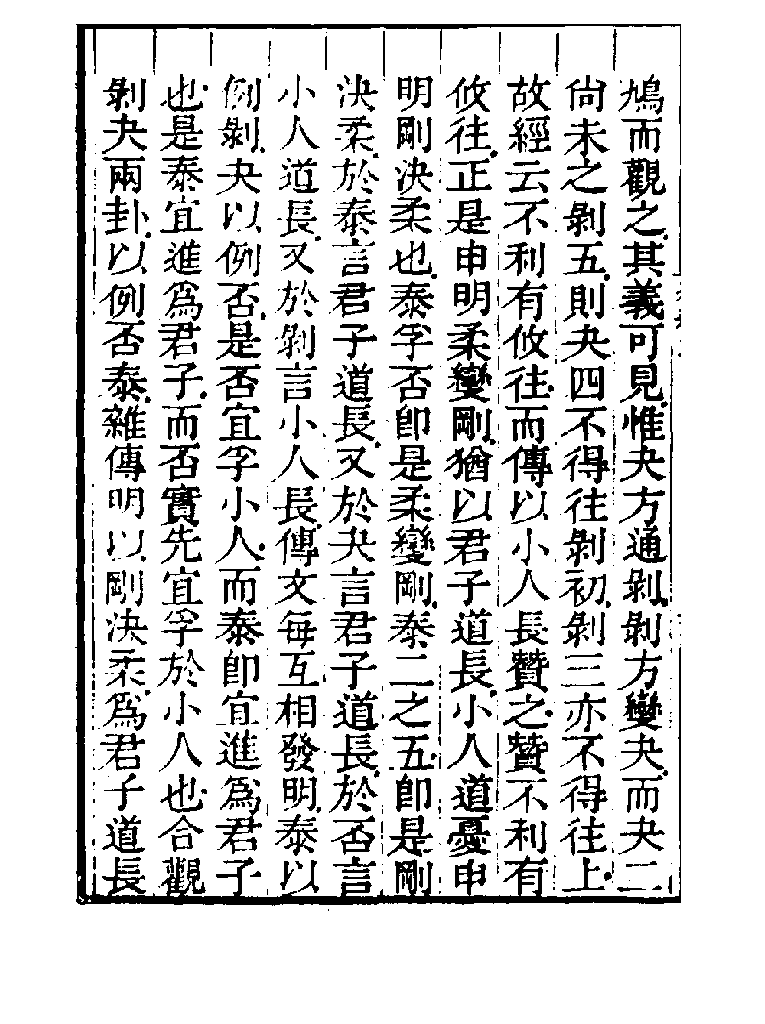 鳩而觀之其義可見惟夬方通剝剝方變夬而夬二
尙未之剝五則夬四不得往剝初剝三亦不得往上
故經云不利有攸往而傳以小人長贊之贊不利有
攸往正是申明柔變剛猶以君子道長小人道憂申
明剛決柔也泰孚否卽是柔變剛泰二之五卽是剛
決柔於泰言君子道長又於夬言君子道長於否言
小人道長又於剝言小人長傳文每互相發明泰以
例剝夬以例否是否宜孚小人而泰卽宜進爲君子
也是泰宜進爲君子而否實先宜孚於小人也合觀
剝夬兩卦以例否泰雜傳明以剛決柔爲君子道長